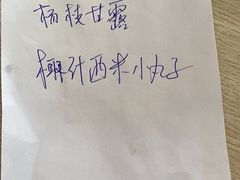 杨枝甘露
椰汁西米小丸子